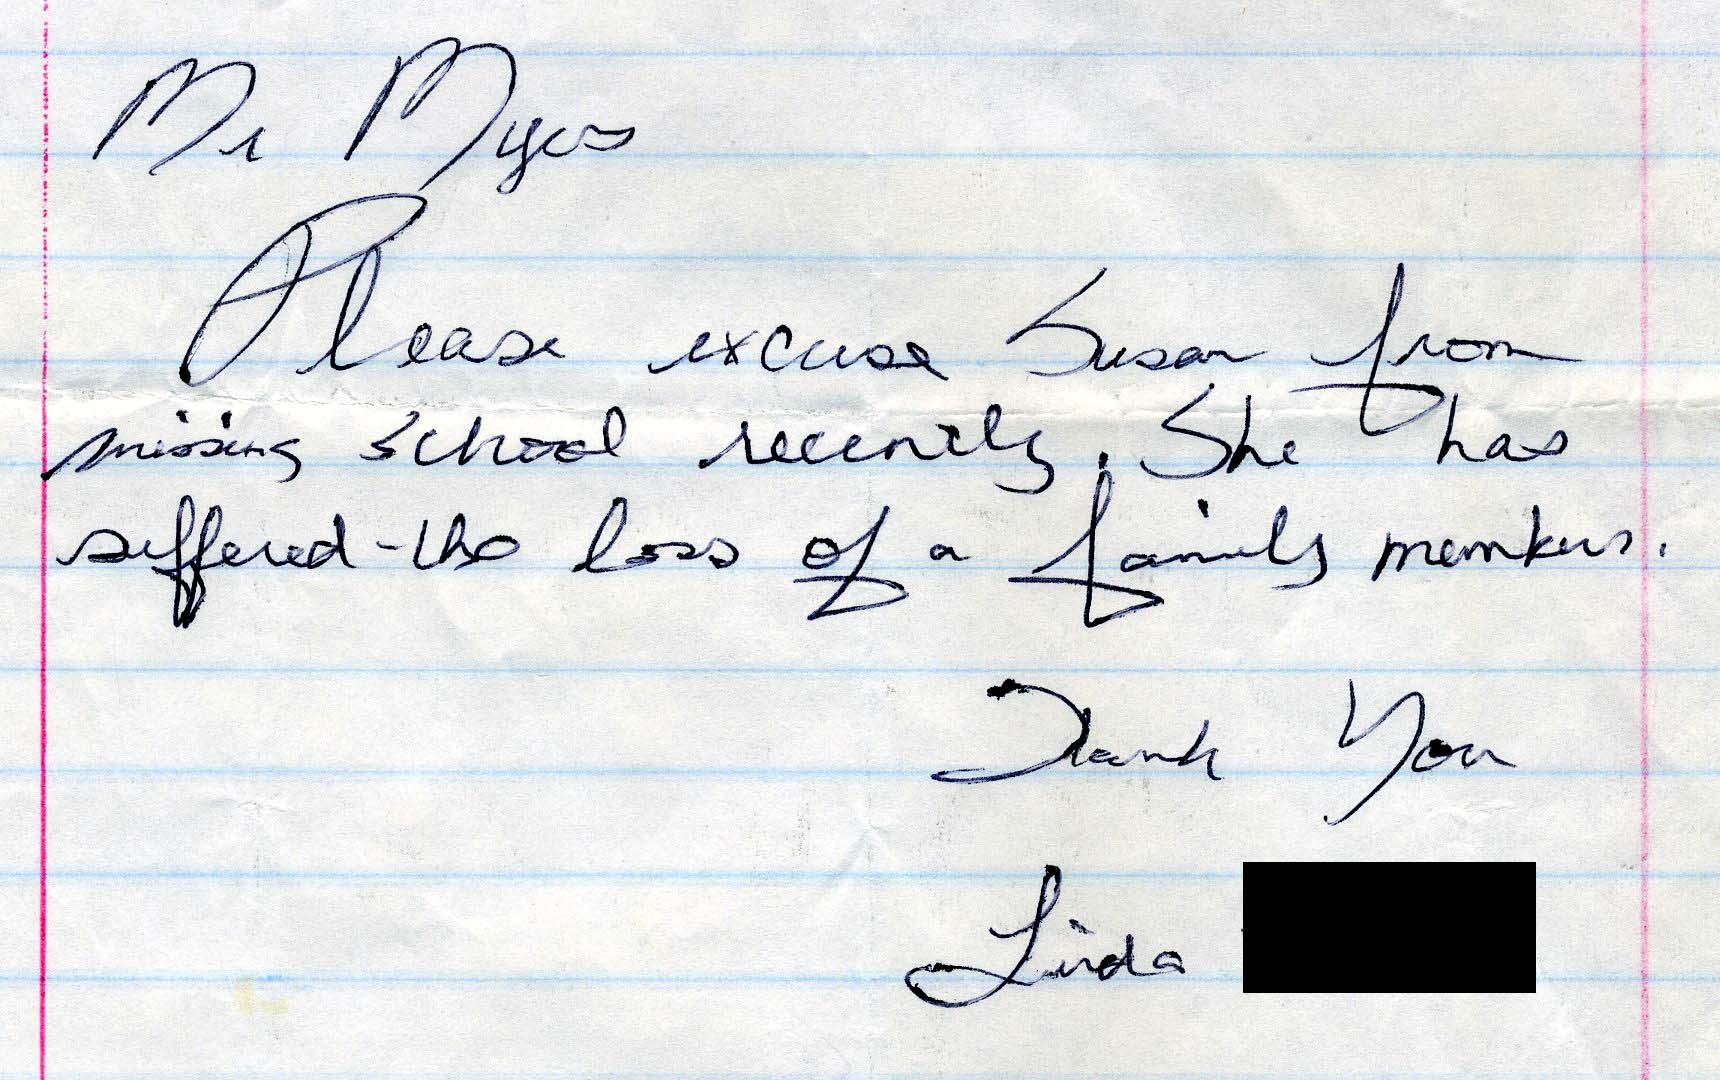 Mr Myers
Please excuse Susan from
missing school recently. She has
suffered the loss of a family members.
Thank You
Linda